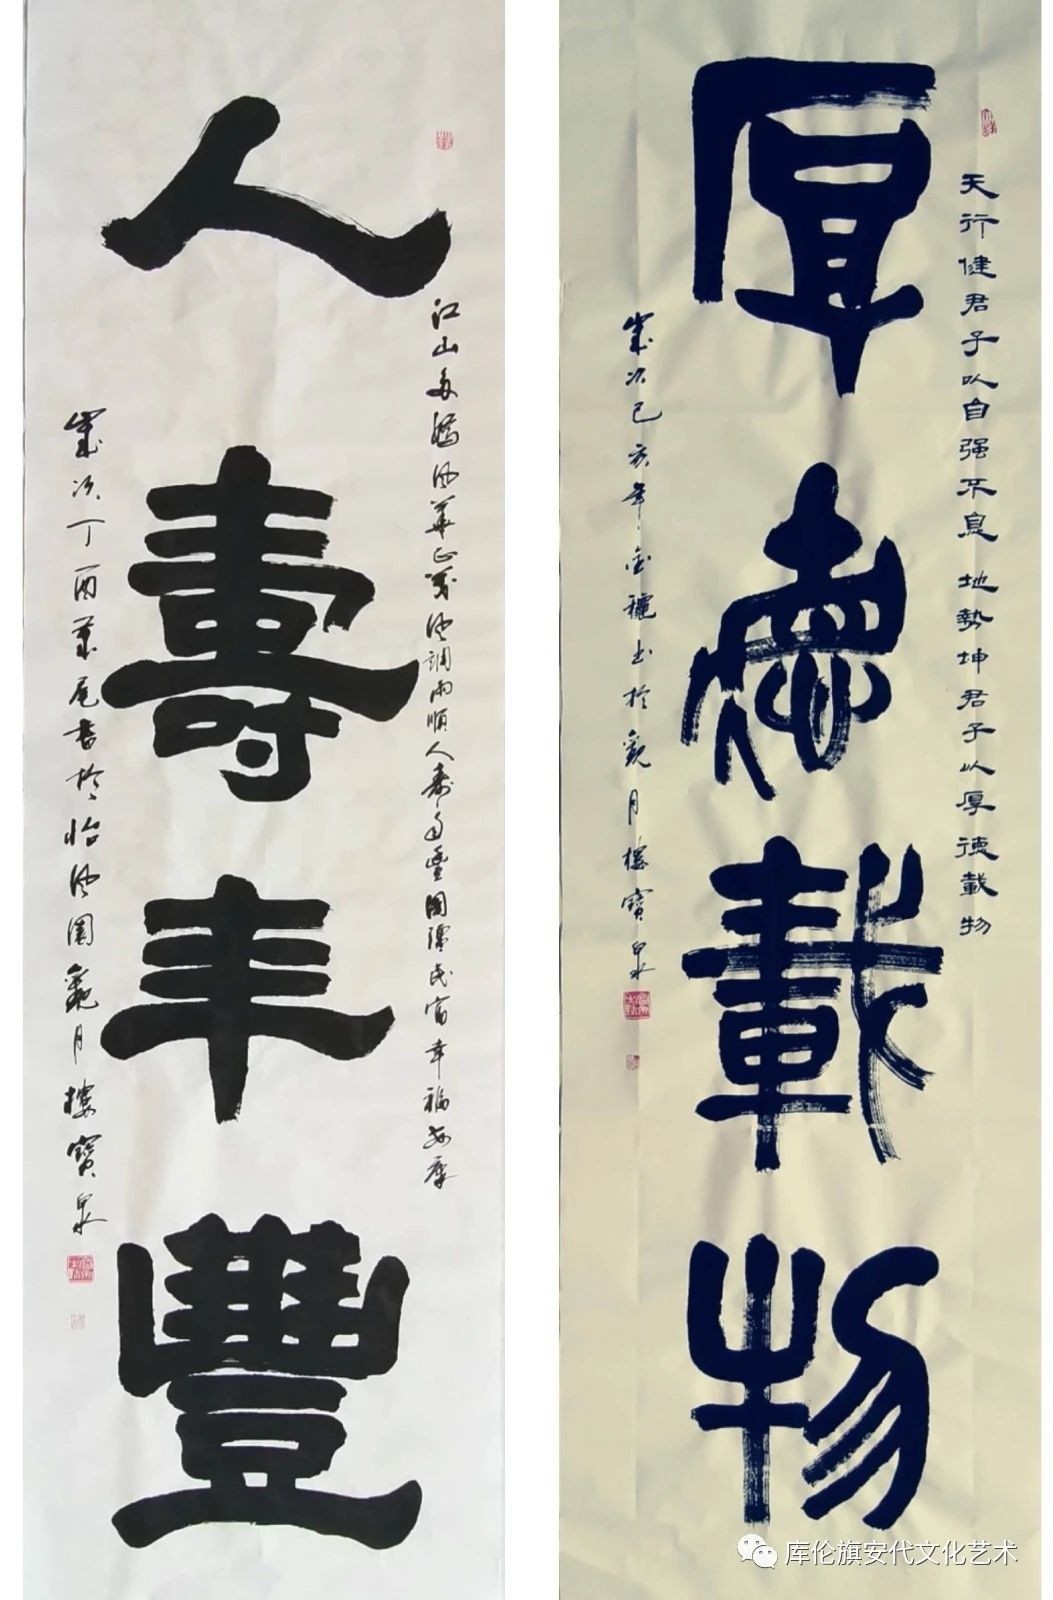 天行健君子以自强不息 地勢坤君子以厚德載物
厚德載物
歲次己亥年金龝书於觀月樓寶泉
江山多嬌风華正茂风調雨順人壽年豐國强民富幸福安康
人壽年豐
歲次丁酉歲尾書於怡风園觀月樓寶泉
库伦旗安代文化艺术